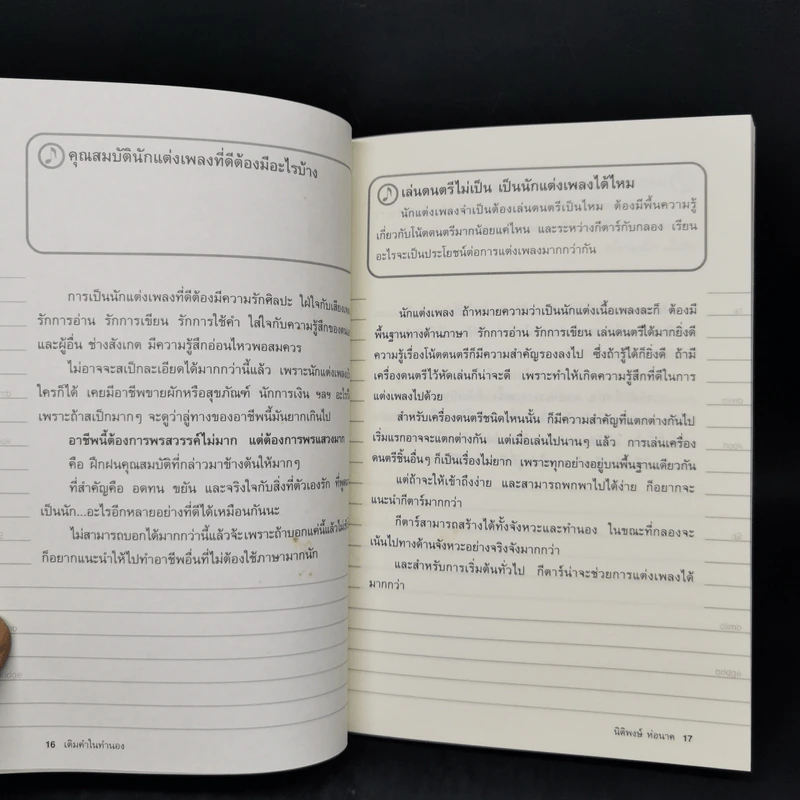 คุณสมบัตินักแต่งเพลงที่ดีต้องมีอะไรบ้าง
การเป็นนักแต่งเพลงที่ดีต้องมีความรักศิลปะ ใฝ่ใจกับเสียงเพลง
รักการอ่าน รักการเขียน รักการใช้คำ ใส่ใจกับความรู้สึกของตนเอง
และผู้อื่น ช่างสังเกต มีความรู้สึกอ่อนไหวพอสมควร
ไม่อาจจะสเป็กละเอียดได้มากกว่านี้แล้ว เพราะนักแต่งเพลง
ใครก็ได้ เคยมีอาชีพขายผักหรือสุขภัณฑ์ นักการเงิน ฯลฯ
เพราะถ้าสเป็กมากๆ จะดูว่าลู่ทางของอาชีพนี้มันยากเกินไป
อาชีพนี้ต้องการพรสวรรค์ไม่มาก แต่ต้องการพรแสวงมาก
คือ ฝึกฝนคุณสมบัติที่กล่าวมาข้างต้นให้มากๆ
ที่สำคัญคือ อดทน ขยัน และจริงใจกับสิ่งที่ตัวเองรัก
เป็นนัก...อะไรอีกหลายอย่างที่ดีได้เหมือนกันนะ
ไม่สามารถบอกได้มากกว่านี้แล้วจ้ะเพราะถ้าบอกแค่นี้แล้ว
ก็อยากแนะนำให้ไปทำอาชีพอื่นที่ไม่ต้องใช้ภาษามากนัก
16 เติมคำในทำนอง
เล่นดนตรีไม่เป็น เป็นนักแต่งเพลงได้ไหม
นักแต่งเพลงจำเป็นต้องเล่นดนตรีเป็นไหม ต้องมีพื้นความรู้
เกี่ยวกับโน้ตดนตรีมากน้อยแค่ไหน และระหว่างกีตาร์กับกลอง เรียน
อะไรจะเป็นประโยชน์ต่อการแต่งเพลงมากกว่ากัน
นักแต่งเพลง ถ้าหมายความว่าเป็นนักแต่งเนื้อเพลงละก็ ต้องมี
พื้นฐานทางด้านภาษา รักการอ่าน รักการเขียน เล่นดนตรีได้มากยิ่งดี
ความรู้เรื่องโน้ตดนตรีก็มีความสำคัญรองลงไป ซึ่งถ้ารู้ได้ก็ยิ่งดี ถ้ามี
เครื่องดนตรีไว้หัดเล่นก็น่าจะดี เพราะทำให้เกิดความรู้สึกที่ดีในการ
แต่งเพลงไปด้วย
สำหรับเครื่องดนตรีชนิดไหนนั้น ก็มีความสำคัญที่แตกต่างกันไป
เริ่มแรกอาจจะแตกต่างกัน แต่เมื่อเล่นไปนานๆ แล้ว การเล่นเครื่อง
ดนตรีชิ้นอื่นๆ ก็เป็นเรื่องไม่ยาก เพราะทุกอย่างอยู่บนพื้นฐานเดียวกัน
แต่ถ้าจะให้เข้าถึงง่าย และสามารถพกพาไปได้ง่าย ก็อยากจะ
แนะนำกีตาร์มากกว่า
กีตาร์สามารถสร้างได้ทั้งจังหวะและทำนอง ในขณะที่กลองจะ
เน้นไปทางด้านจังหวะอย่างจริงจังมากกว่า
และสำหรับการเริ่มต้นทั่วไป กีตาร์น่าจะช่วยการแต่งเพลงได้
มากกว่า
climb
bridge
นิติพงษ์ ห่อนาค 17